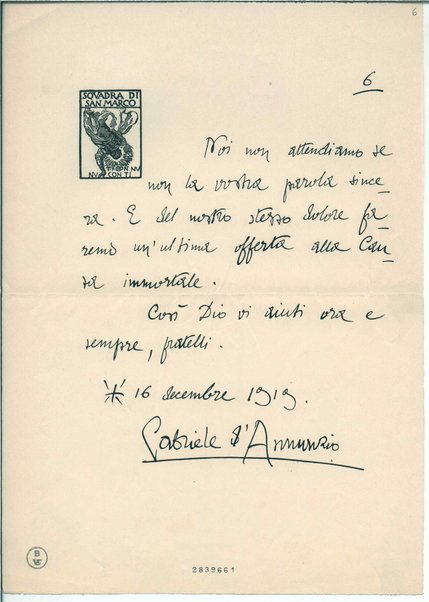 6
SQVADRA DI
SAN MARCO
TI CON NV
NV CON TI
6
Noi non attendiamo se
non la vostra parola since-
ra. E del nostro stesso dolore fa-
remo un'ultima offerta alla Cau-
sa immortale.
Così Dio vi aiuti ora e
sempre, fratelli.
16 decembre 1919.
Gabriele d'Annunzio
2839661